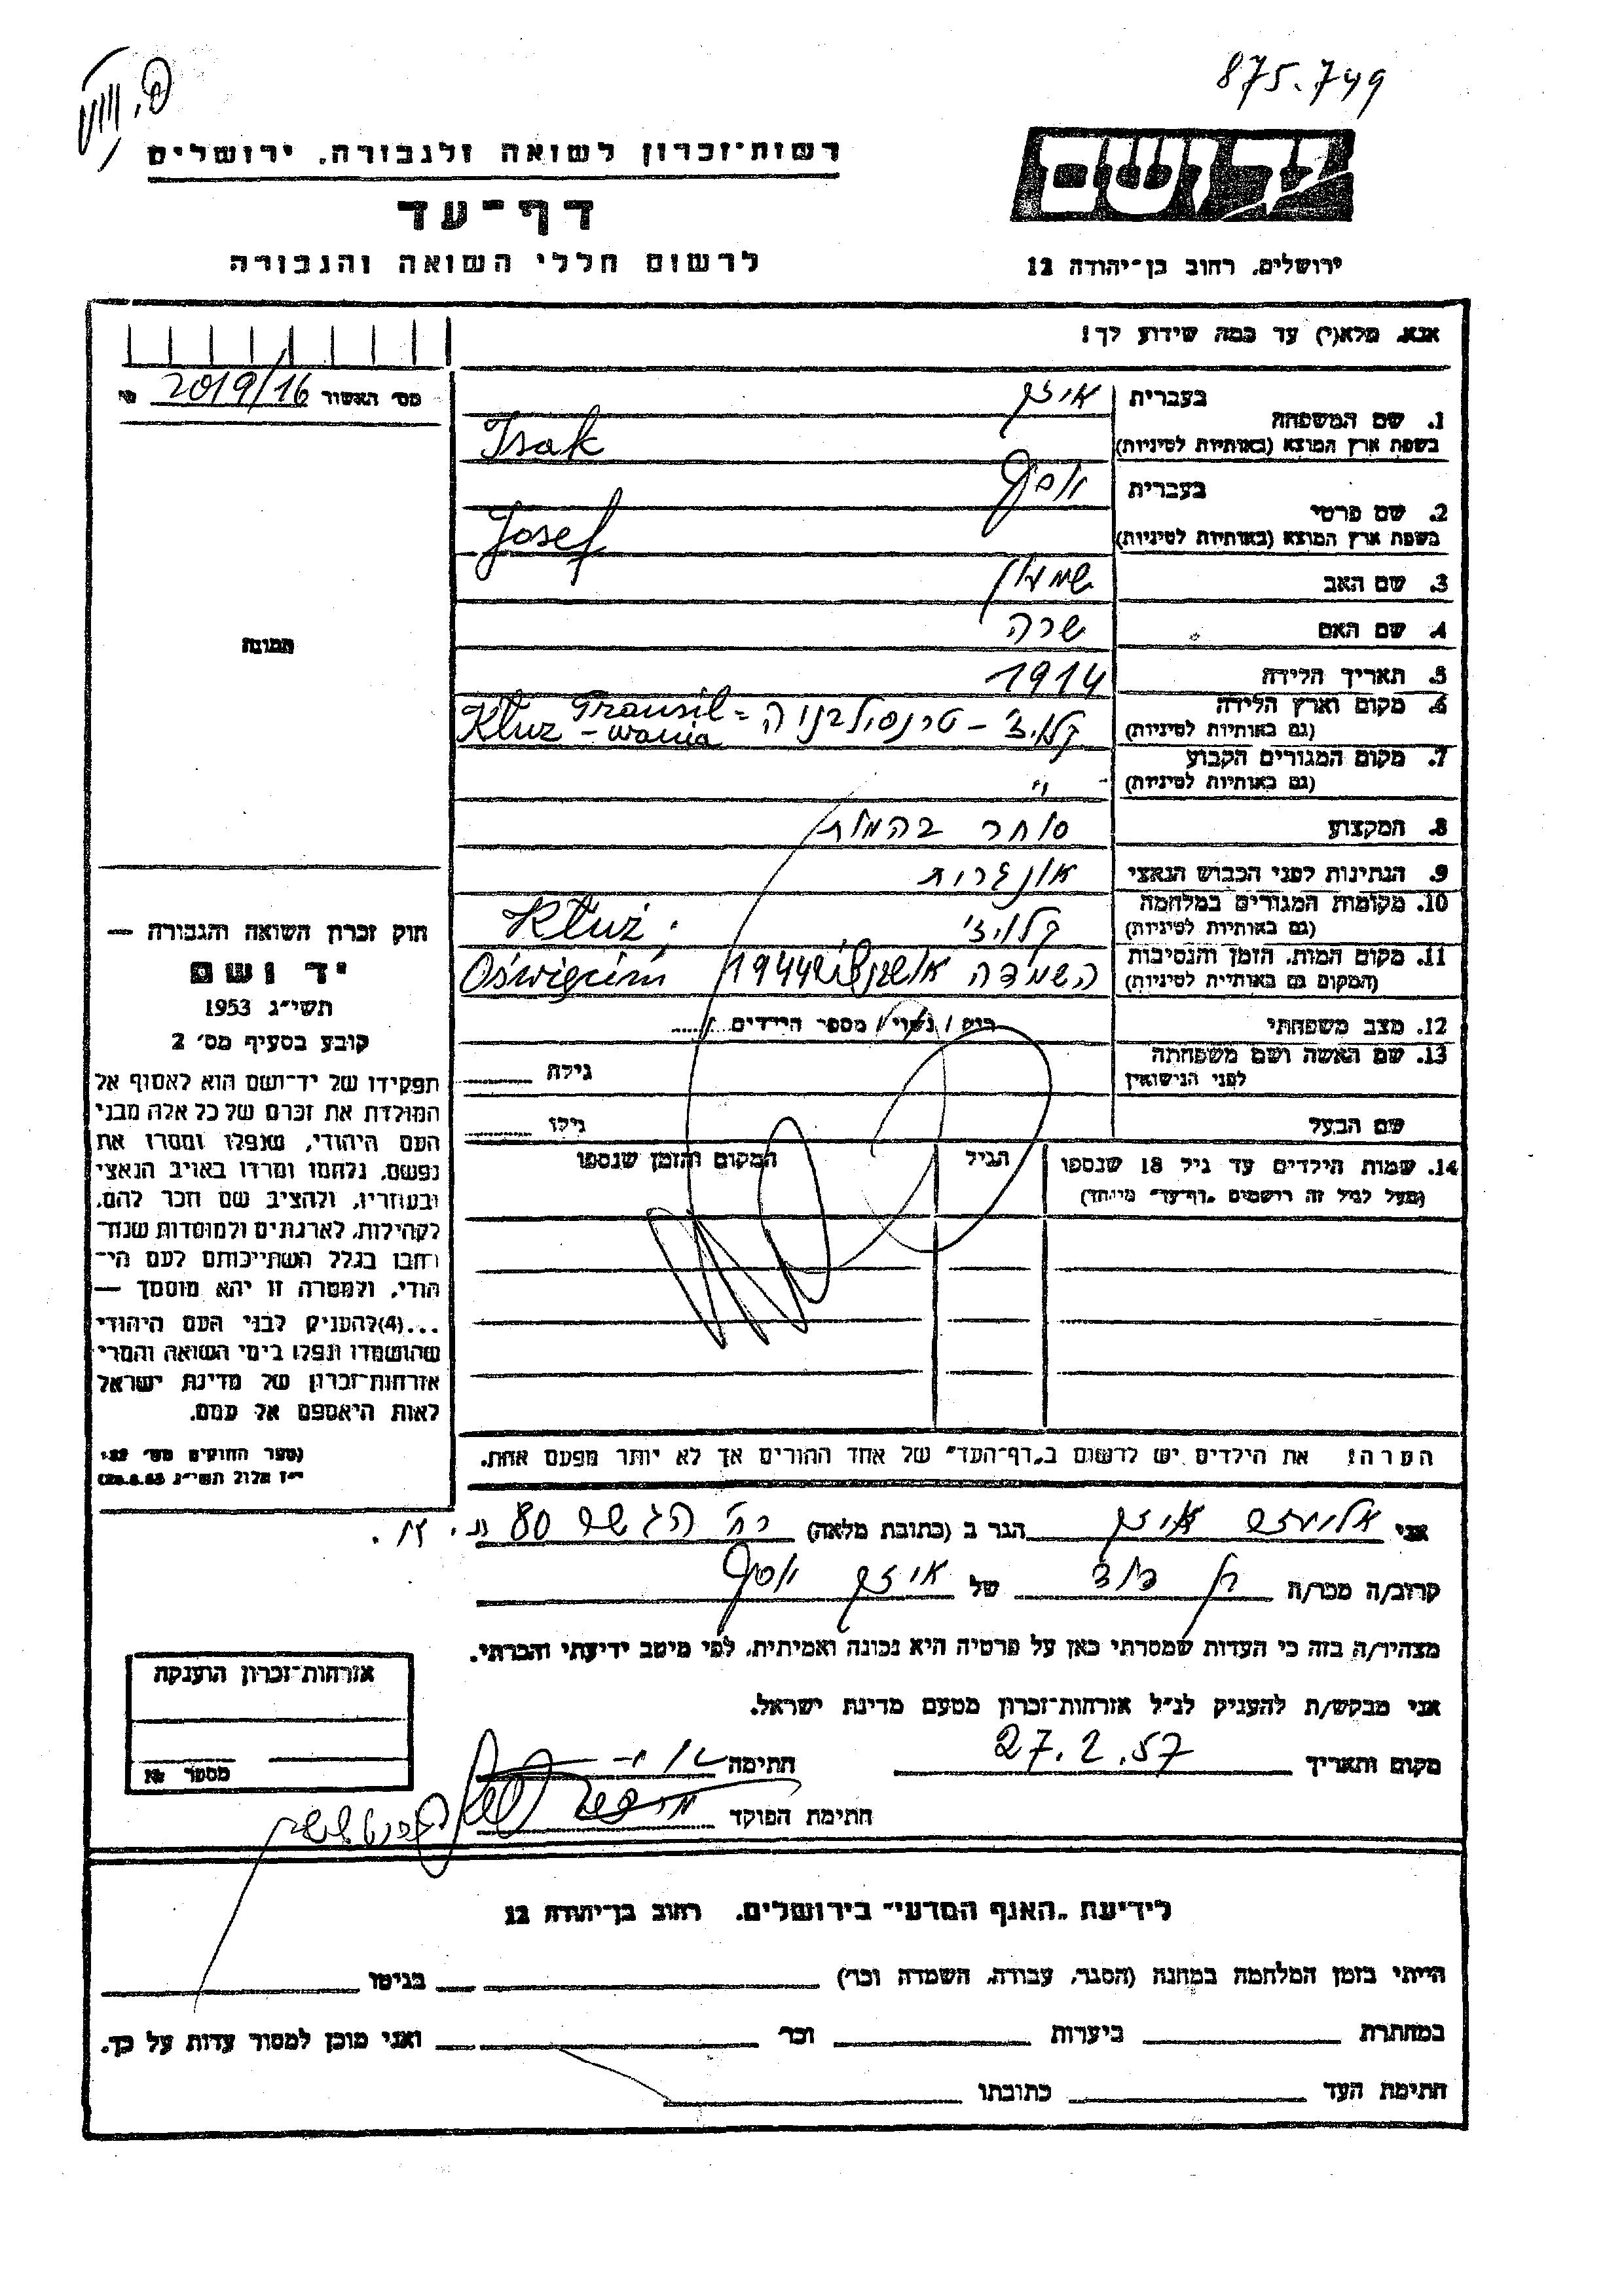 875.749
יד ושם
רשות־זכרון לשואה ולגבורה, ירושלים
דף־עד
לרשום חללי השואה והגבורה
ירושלים, רחוב בן־יהודה 12
אנא, מלא(י) עד כמה שידוע לך!
מס׳ האשור 2019/16
1. שם המשפחה
בעברית איזק
בשפת ארץ המוצא (באותיות לטיניות) Isak
2. שם פרטי
בעברית יוסף
בשפת ארץ המוצא (באותיות לטיניות) Josef
3. שם האב שמעון
4. שם האם שרה
תמונה
5. תאריך הלידה 1914
6. מקום וארץ הלידה
(גם באותיות לטיניות) קלוז׳ - טרנסילבניה = Transil
Kluż - wania
7. מקום המגורים הקבוע
(גם באותיות לטיניות) "
8. המקצוע סוחר בהמות
9. הנתינות לפני הכבוש הנאצי אונגרית
10. מקומות המגורים במלחמה
(גם באותיות לטיניות) קלוז׳ Kluż,
11. מקום המות, הזמן והנסיבות
(המקום גם באותיות לטיניות) השמדה 1944 Oświęcim
12. מצב משפחתי רווק / נשוי / מספר הילדים
13. שם האשה ושם משפחתה
לפני הנישואין גילה
שם הבעל גילו
14. שמות הילדים עד גיל 18 שנספו הגיל המקום והזמן שנספו
(מעל לגיל זה רושמים „דף־עד״ מיוחד)
הערה! את הילדים יש לרשום ב„דף־העד״ של אחד ההורים אך לא יותר מפעם אחת.
חוק זכרון השואה והגבורה —
יד ושם
תשי״ג 1953
קובע בסעיף מס׳ 2
תפקידו של יד־ושם הוא לאסוף אל
המולדת את זכרם של כל אלה מבני
העם היהודי, שנפלו ומסרו את
נפשם, נלחמו ומרדו באויב הנאצי
ובעוזריו, ולהציב שם וזכר להם,
לקהילות, לארגונים ולמוסדות שנח־
רבו בגלל השתייכותם לעם הי־
הודי, ולמטרה זו יהא מוסמך —
...(4)להעניק לבני העם היהודי
שהושמדו ונפלו בימי השואה והמרי
אזרחות־זכרון של מדינת ישראל
לאות היאספם אל עמם.
(ספר החוקים מס׳ 132
י״ז אלול תשי״ג 28.8.53)
אני איזק הגר ב (כתובת מלאה) רח׳ 80
קרוב/ה מכר/ה בן דוד של איזק יוסף
מצהיר/ה בזה כי העדות שמסרתי כאן על פרטיה היא נכונה ואמיתית, לפי מיטב ידיעתי והכרתי.
אני מבקש/ת להעניק לנ״ל אזרחות־זכרון מטעם מדינת ישראל.
מקום ותאריך 27.2.57 חתימה
חתימת הפוקד
אזרחות־זכרון הוענקה
מספר №
לידיעת „האגף המדעי״ בירושלים, רחוב בן־יהודה 12
הייתי בזמן המלחמה במחנה (הסגר, עבודה, השמדה וכו׳) בגיטו
במחתרת ביערות וכו׳ ואני מוכן למסור עדות על כך.
חתימת העד כתובתו